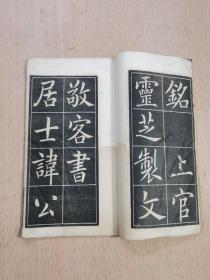 銘上官
靈芝製文
敬客書
居士諱公